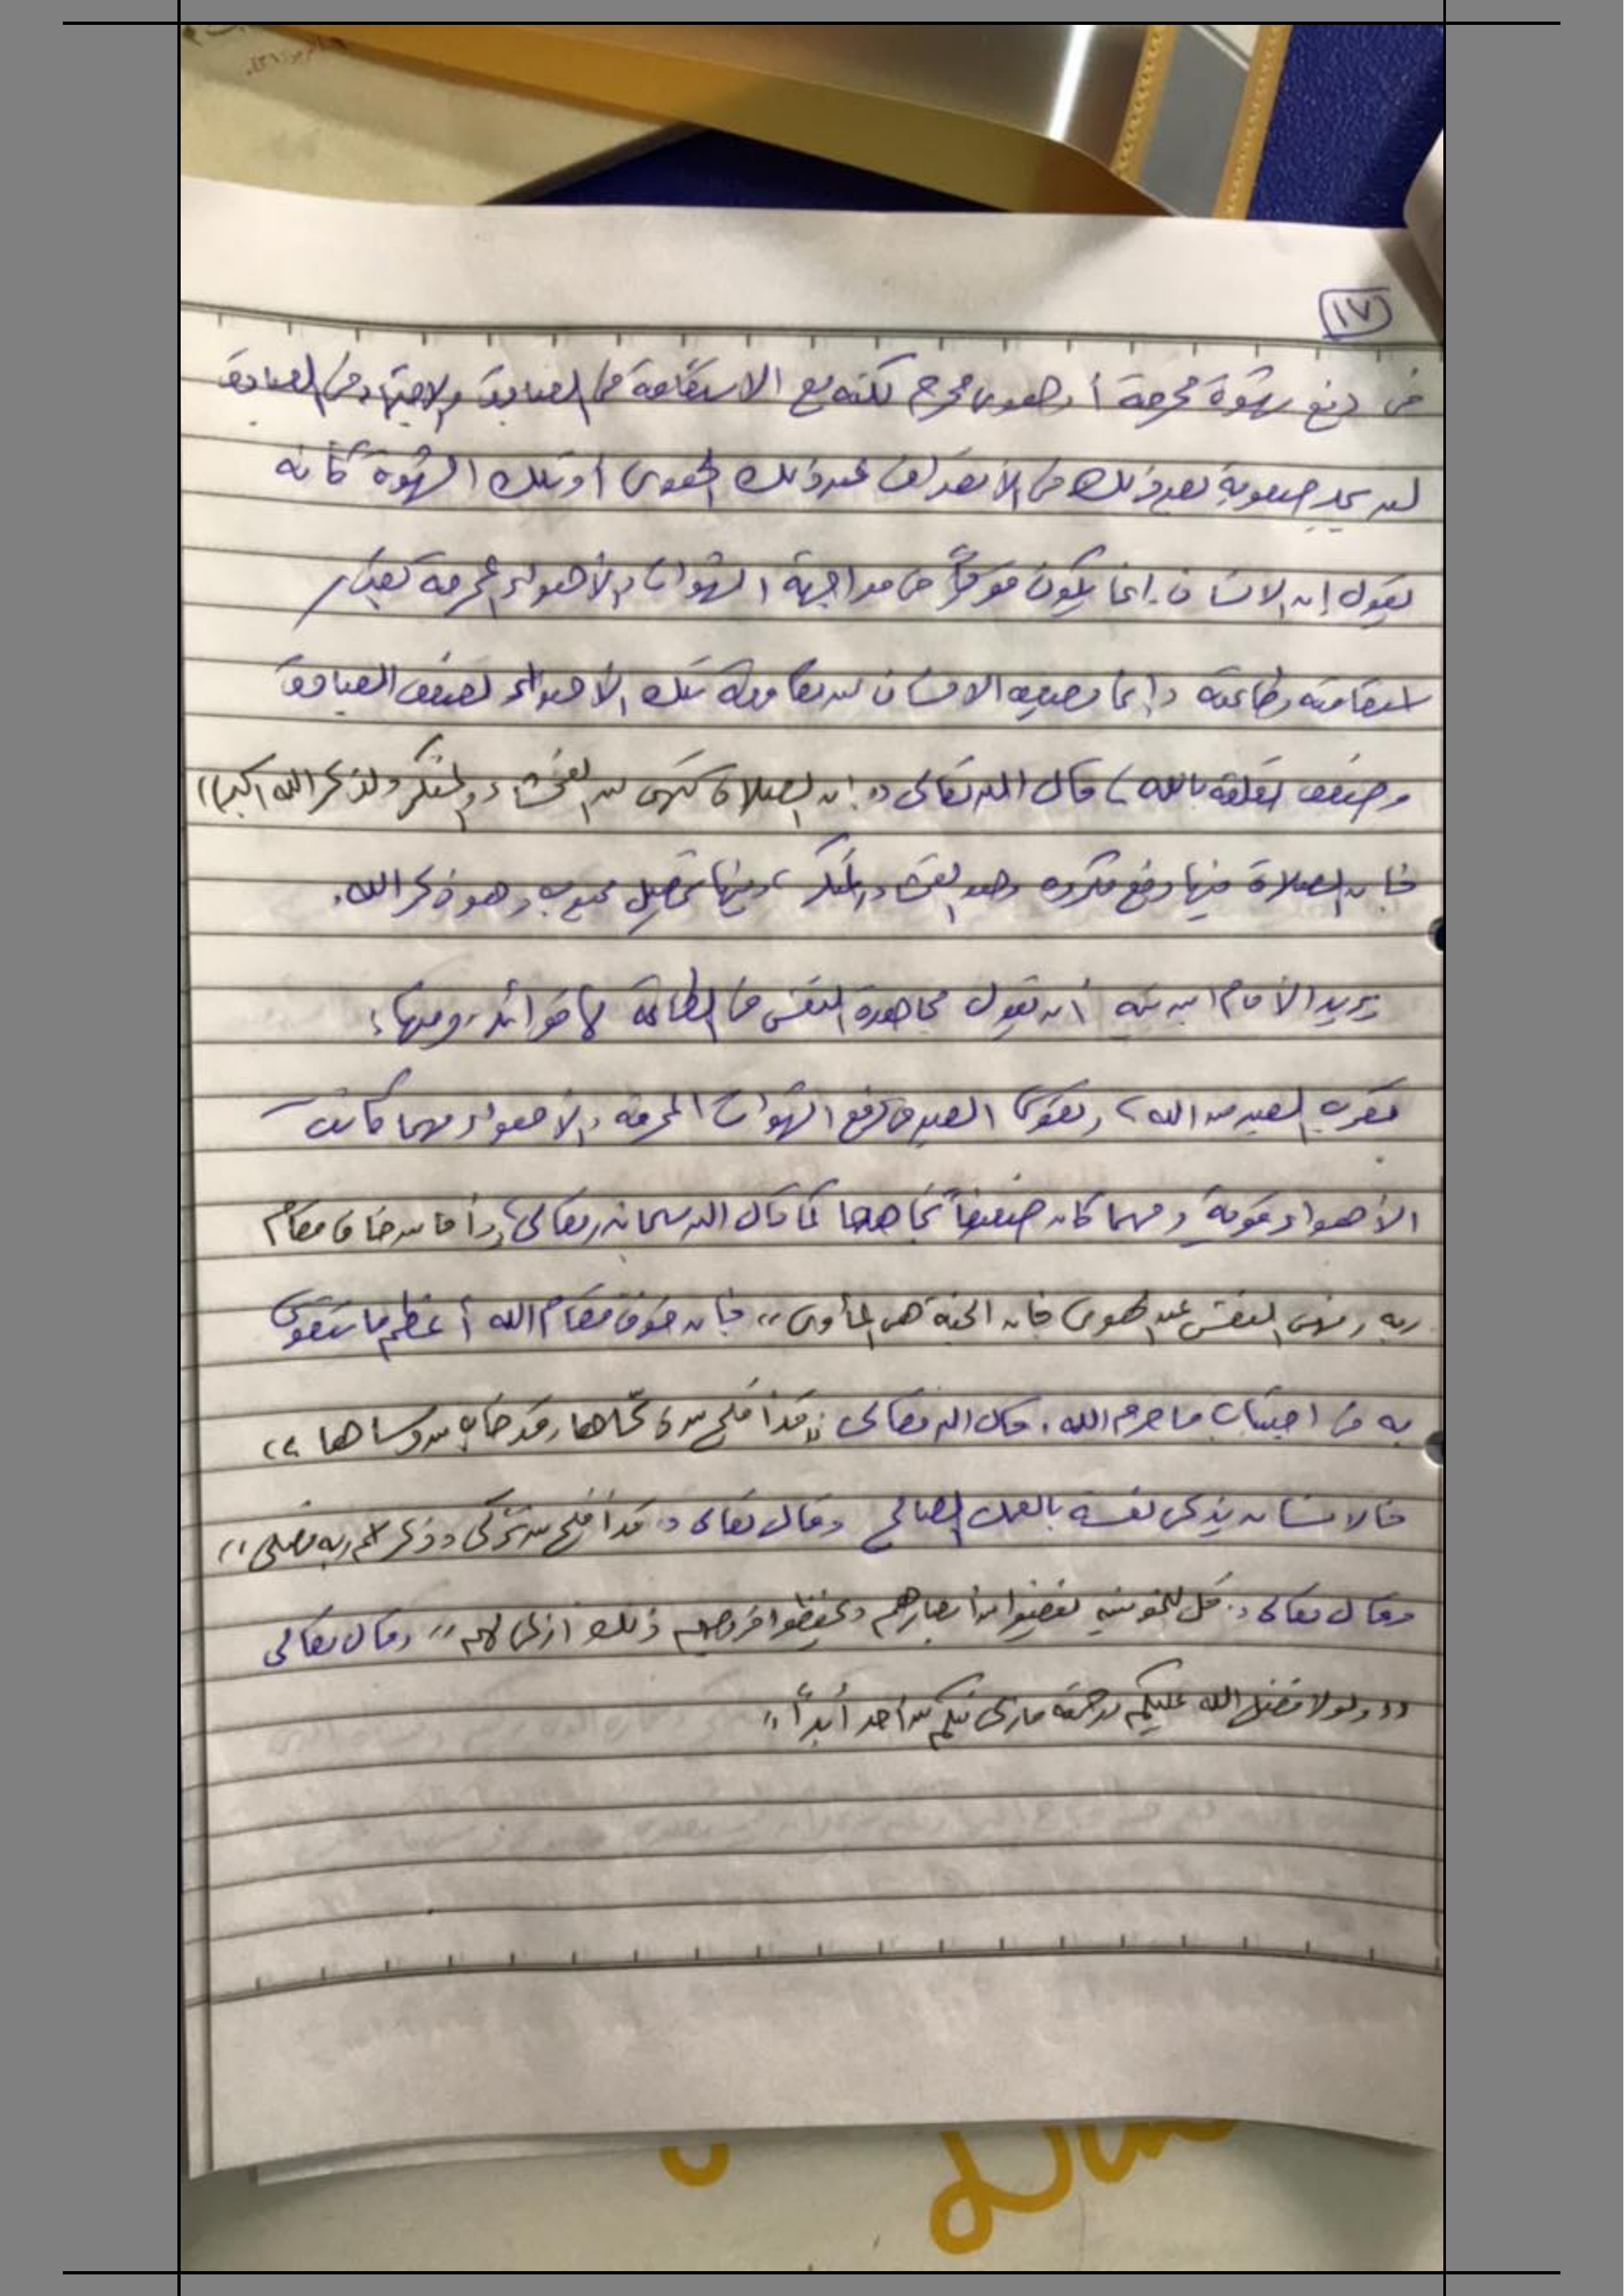 ١٧
في دفع شهوة محرمة أو هوى محرم لكنه مع الاستقامة في العبادة والاجتهاد في العبادة
لن يجد صعوبة بعد ذلك في الانصراف عن ذلك الهوى أو تلك الشهوة كأنه
يقول إن الانسان إنما يكون موفقاً في مواجهة الشهوات والأهواء المحرمة بمقدار
استقامته وطاعته وإنما يصعب الانسان من مقاومة تلك الأهواء لضعف العبادة
وضعف تعلقه بالله، قال الله تعالى ((إن الصلاة تنهى عن الفحشاء والمنكر ولذكر الله أكبر))
فإن الصلاة فيها دفع مكروه وهو الفحشاء والمنكر، وفيها تحصيل محبوب وهو ذكر الله.
يريد الأمام ابن تيميه أن يقول مجاهدة النفس في الطاعة لها فوائد، ومنها:
تقرب العبد من الله، وتقوى العبد في دفع الشهوات المحرمة والأهواء مهما كانت
الأهواء قوية ومهما كان ضعيفاً تجاهها كما قال الله سبحانه وتعالى ((وأما من خاف مقام
ربه ونهى النفس عن الهوى فإن الجنة هي المأوى)) فإن خوف مقام الله أعظم ما يتقوى
به في اجتناب ما حرم الله. قال الله تعالى ((قد أفلح من زكاها وقد خاب من دساها))
فالانسان يزكي نفسه بالعمل الصالح وقال تعالى ((قد أفلح من تزكى وذكر اسم ربه فصلى))
وقال تعالى ((قل للمؤمنين يغضوا من أبصارهم ويحفظوا فروجهم ذلك أزكى لهم)) وقال تعالى
((ولولا فضل الله عليكم ورحمته ما زكى منكم من أحد أبداً))